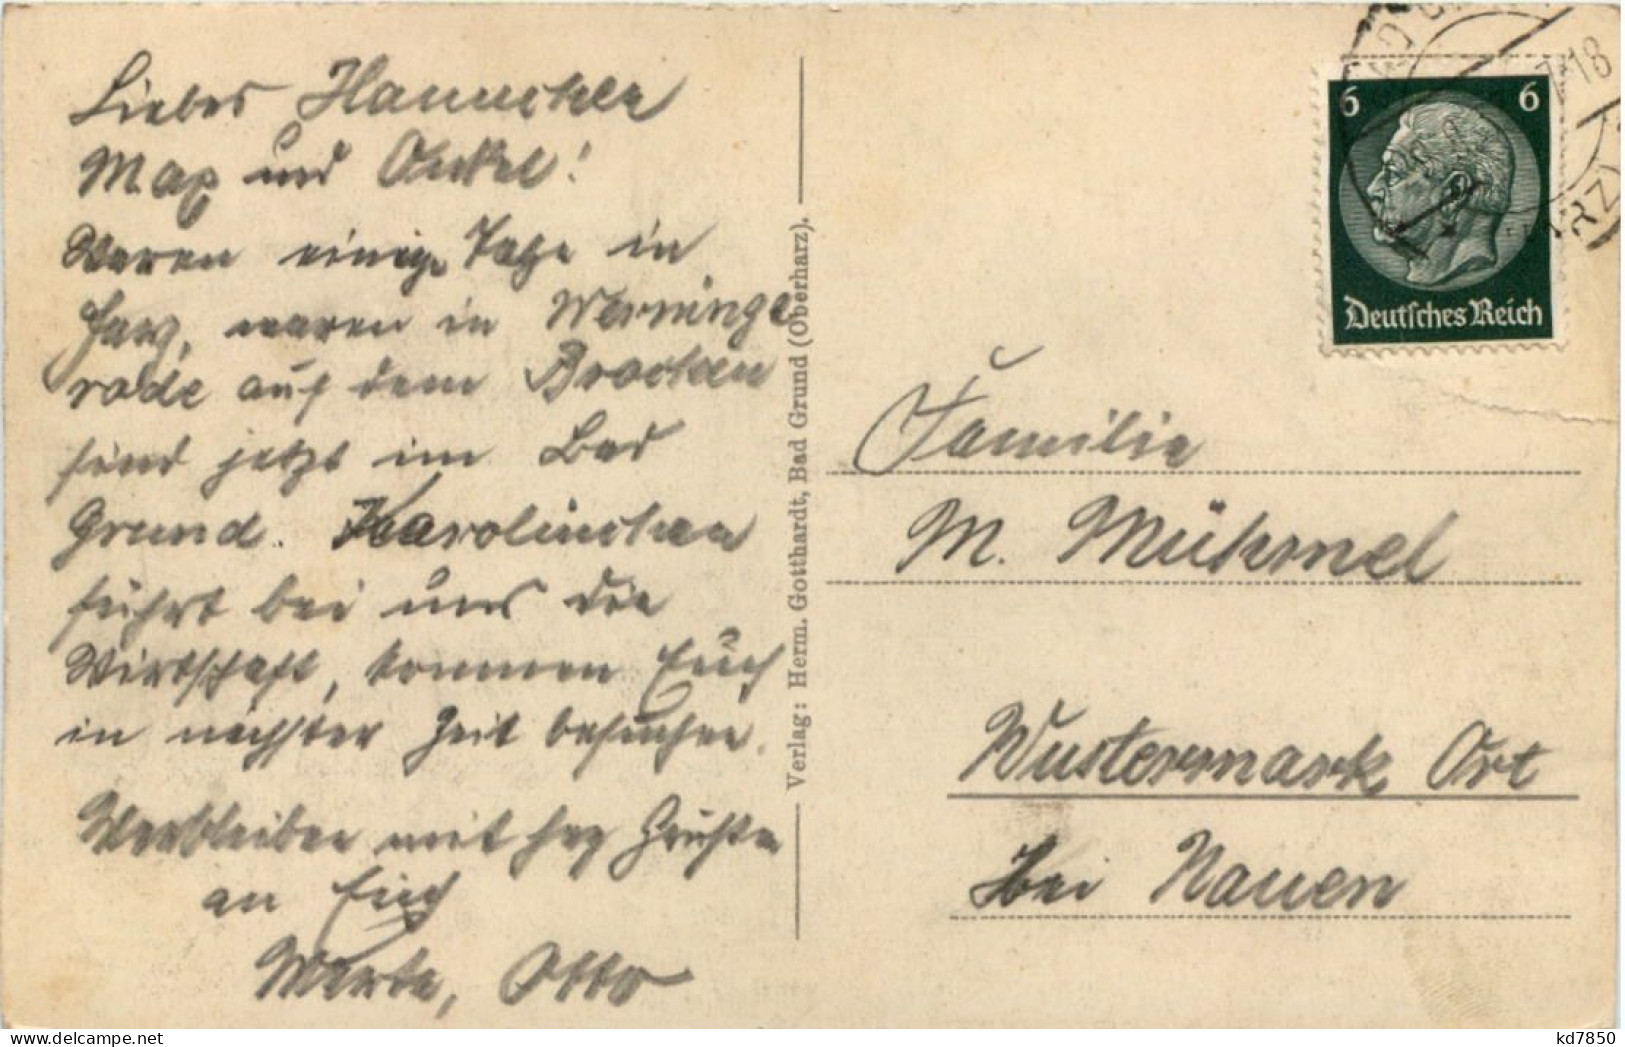 Liebes Hannchen
Max und Onkel!
Waren einige Tage in
Harz, waren in Werninge
rode auf dem Brocken
sind jetzt im Bad
Grund. Karolinchen
führt bei uns die
Wirtschaft, kommen Euch
in nächster Zeit besuchen.
Verbleiben mit herz Grüßen
an Euch
Otto
Verlag: Herm. Gotthardt, Bad Grund (Oberharz).
6 6
Deutsches Reich
18
RZ)
Familie
M. Mühmel
Wustermark Ort
bei Nauen
kd7850